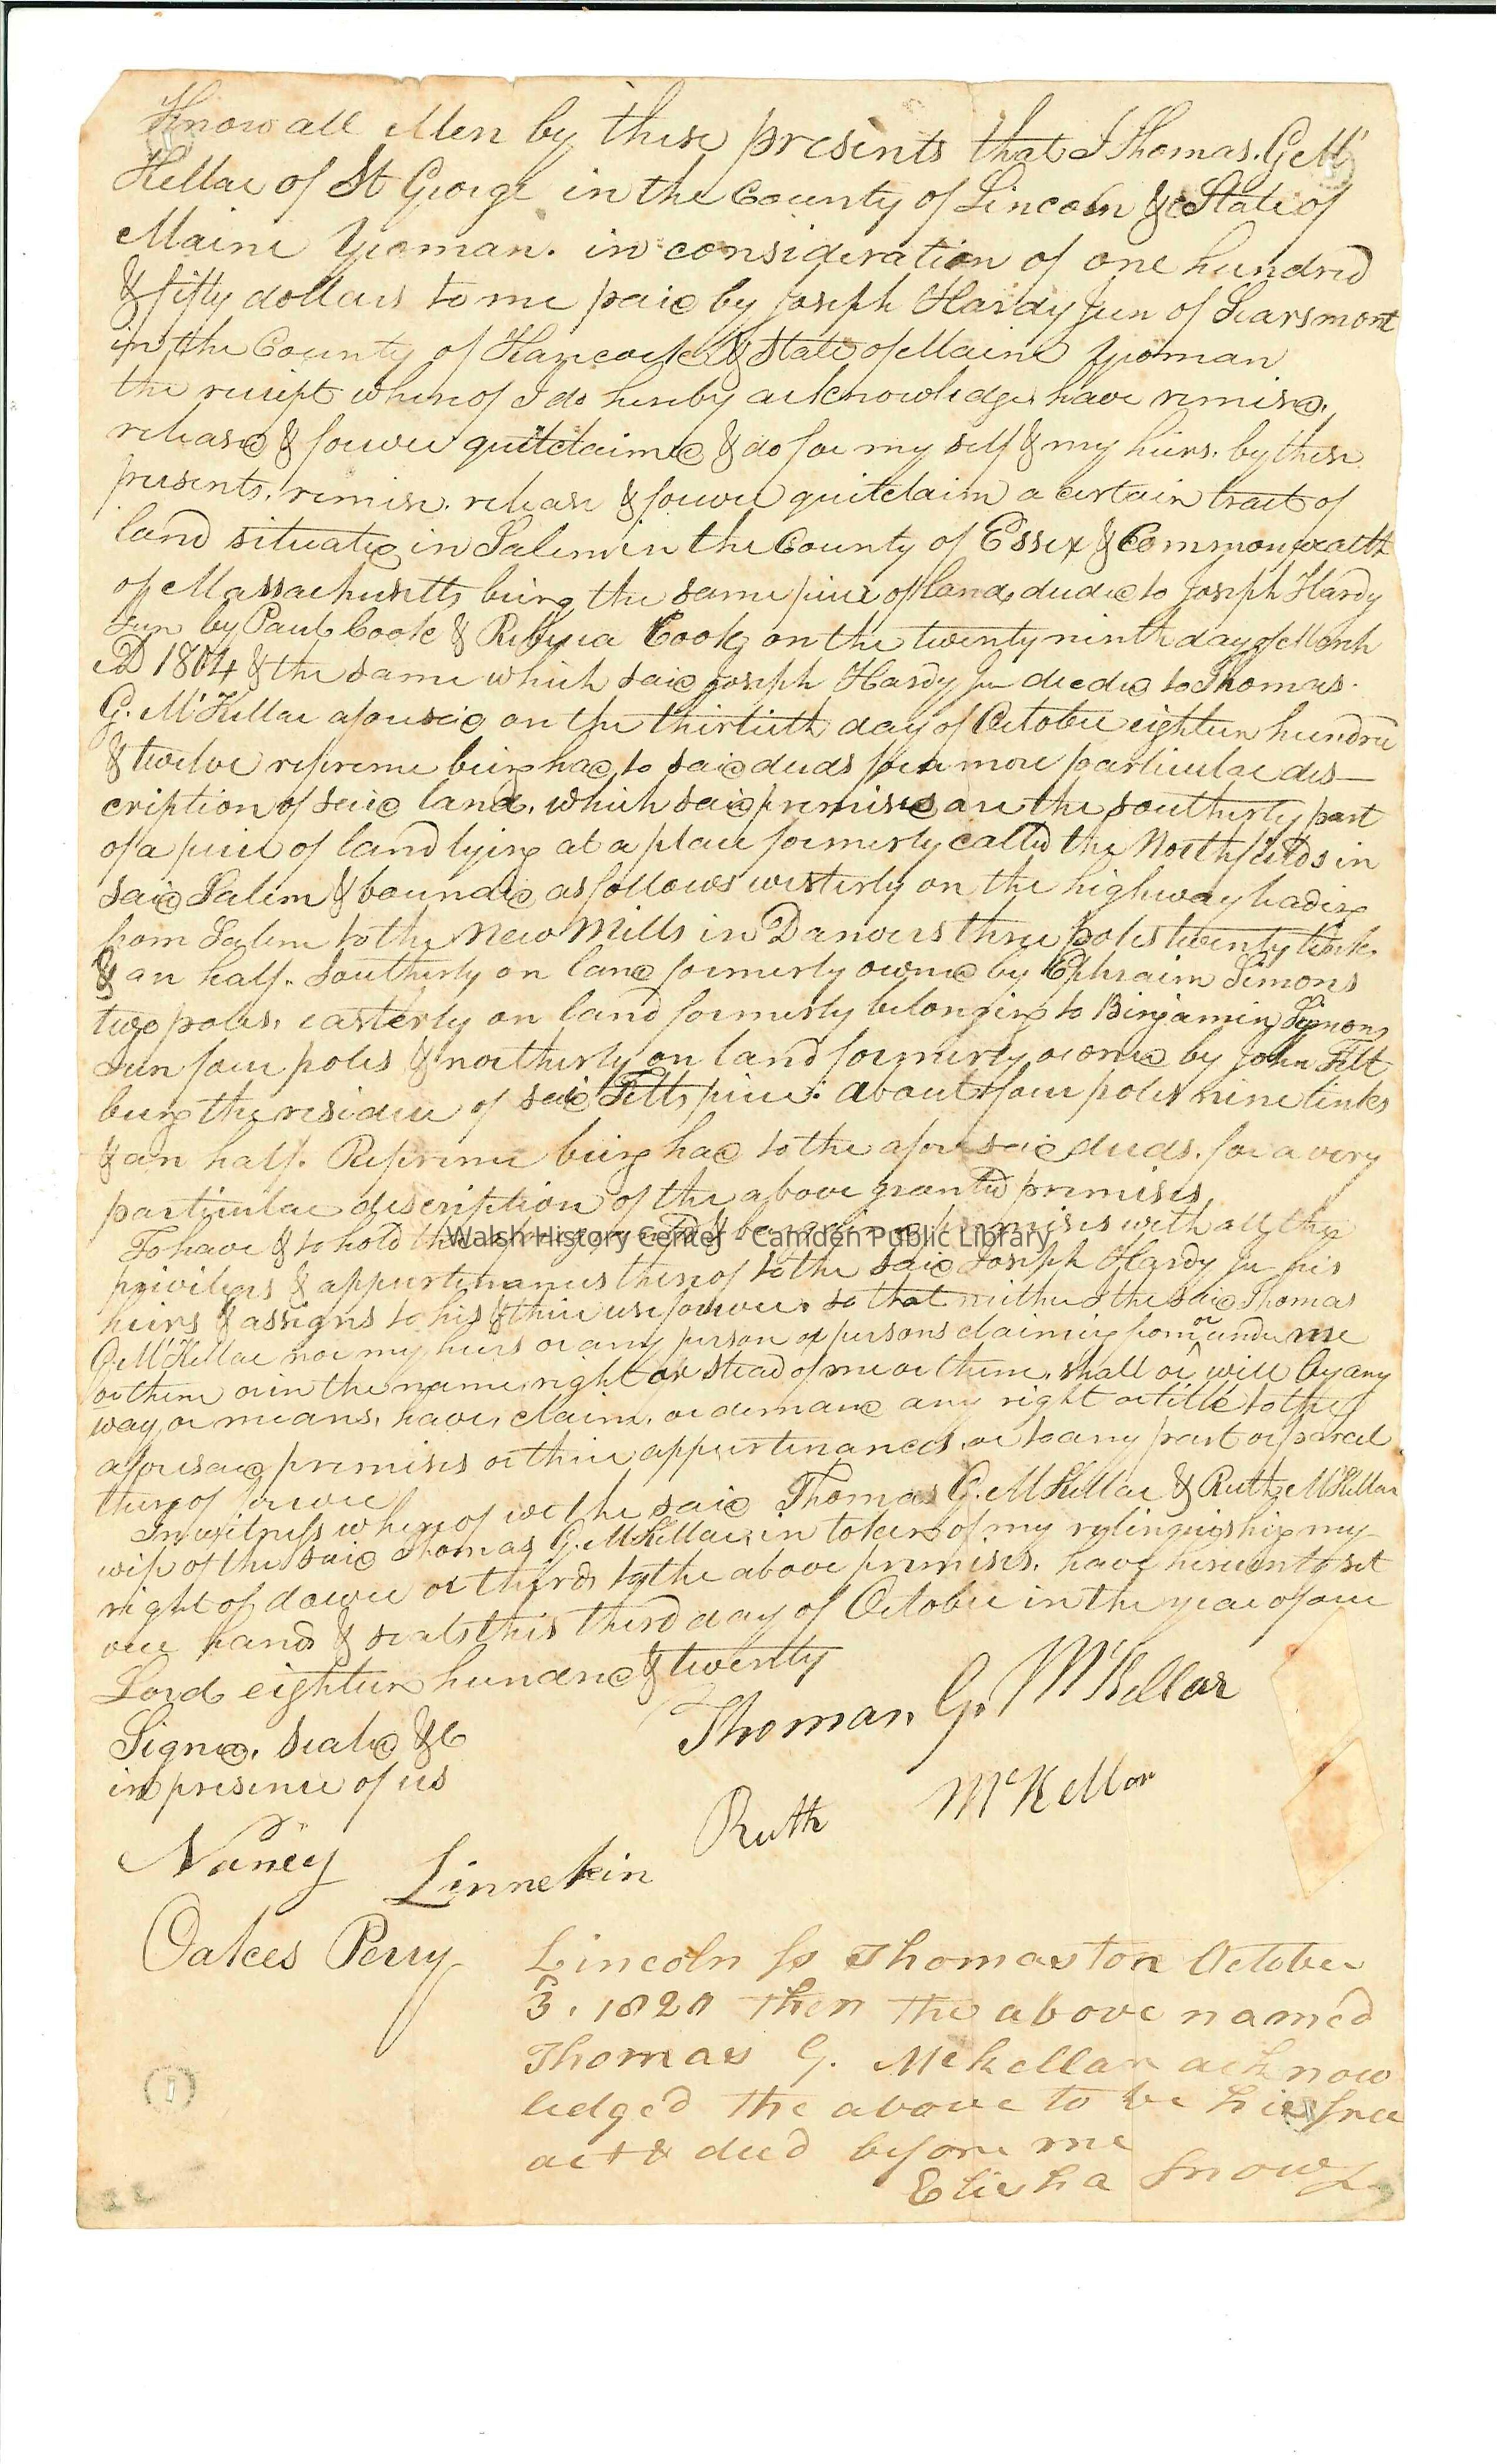 Know all Men by these presents that I Thomas. G. Mc
Kellar of St George in the County of Lincoln & State of
Maine Yeoman. in consideration of one hundred
& fifty dollars to me paid by Joseph Hardy Jun of Searsmont
in the County of Hancock & State of Maine Yeoman
the receipt whereof I do hereby acknowledge, have remised,
released & forever quitclaimed & do for my self & my heirs. by these
presents. remise. release & forever quitclaim a certain tract of
land situated in Salem in the County of Essex & Commonwealth
of Massachusetts being the same piece of land deeded to Joseph Hardy
Jun by Paul Cook & Cook on the twenty ninth day of March
AD 1804 & the same which said Joseph Hardy Jun deeded to Thomas.
G. McKellar aforesaid on the thirtieth day of October eighteen hundred
& twelve reference being had to said deeds for a more particular des-
cription of said land. which said premises are the southerly part
of a piece of land lying at a place formerly called the Northfields in
said Salem & bounded as follows westerly on the highway leading
from Salem to the New Mills in Danvers three poles twenty links
& an half. Southerly on land formerly owned by Ephraim Simons
two poles. easterly on land formerly belonging to Binjamin Symons
Jun four poles & northerly on land formerly owned by John Felt
being the residue of said Felts piece: about four poles nine links
& an half. Reference being had to the aforesaid deeds. for a very
particular description of the above granted premises.
To have & to hold the premises with all the
Walsh History Center - Camden Public Library
privileges & appurtenances thereof to the said Joseph Hardy Jun his
heirs & assigns to his & their use forever. so that neither I the said Thomas
G McKellar nor my heirs or any person or persons claiming from or under me
or them or in the name, right or stead of me or them. shall or will by any
way or means, have, claim. or demand any right or title to the
aforesaid premises or their appurtenances. or to any part or parcel
thereof forever
In witness whereof we the said Thomas G. McKellar & Ruth McKellar
wife of the said Thomas G. McKellar. in token of my relinquishing my
right of dower or thirds to the above premises. have hereunto set
our hands & seals this third day of October in the year of our
Lord eighteen hundred & twenty
Signed. Sealed &c
in presence of us
Thomas. G. McKellar
Ruth McKellar
Nancy Linnekin
Oakes Perry
Lincoln ss Thomaston October
3. 1820 then the above named
Thomas G. Mckellar acknow
ledged the above to be his free
act & deed before me
Elisha Snow